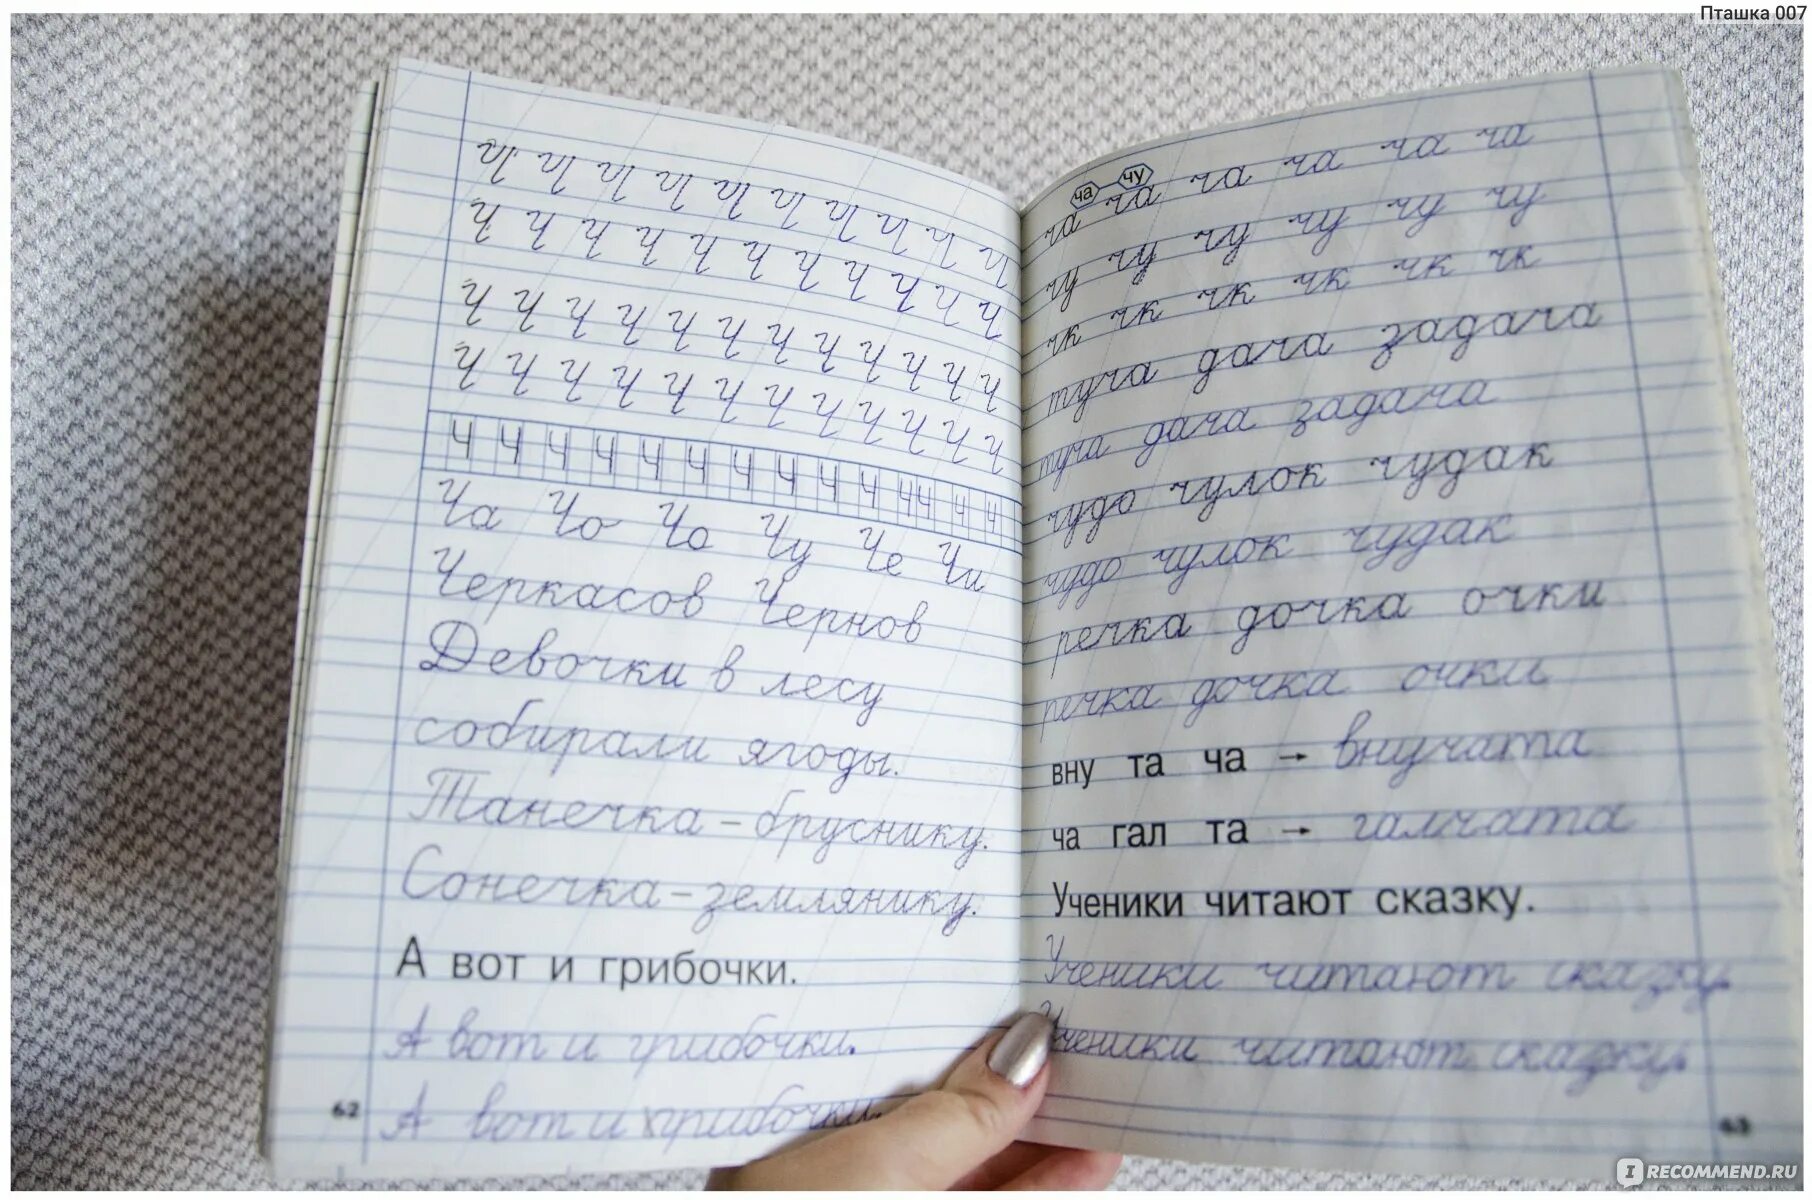 Пташка 007
Ч Ч Ч Ч Ч Ч Ч Ч Ч Ч
Ч Ч Ч Ч Ч Ч Ч Ч Ч Ч Ч
Ч Ч Ч Ч Ч Ч Ч Ч Ч Ч Ч
Ч Ч Ч Ч Ч Ч Ч Ч Ч Ч Ч
Ч Ч Ч Ч Ч Ч Ч Ч Ч Ч Ч Ч Ч Ч
Ча Чо Чо Чу Че Чи
Черкасов Чернов
Девочки в лесу
собирали ягоды.
Танечка – бруснику.
Сонечка – землянику.
А вот и грибочки.
А вот и грибочки.
А вот и грибочки.
62
ча чу
ча ча ча ча ча ча
чу чу чу чу чу чу
чк чк чк чк чк чк
туча дача задача
туча дача задача
чудо чулок чудак
чудо чулок чудак
речка дочка очки
речка дочка очки
вну та ча → внучата
ча гал та → галчата
Ученики читают сказку.
Ученики читают сказку.
Ученики читают сказку.
63
IRECOMMEND.RU